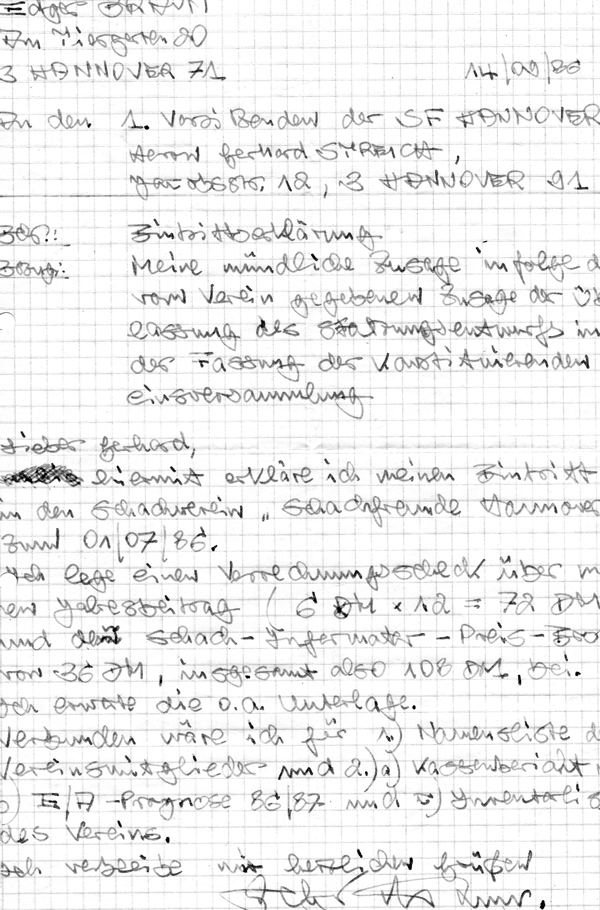 Am Tiergarten 20
3 HANNOVER 71 14/09/86
An den 1. Vorsitzenden der SF HANNOVER
Herrn Gerhard STREICH,
Jacobsstr. 12, 3 HANNOVER 91
Betr.: Eintrittserklärung
Bezug: Meine mündliche Zusage infolge d
vom Verein gegebenen Zusage der Üb
lassung des Satzungsentwurfs in
der Fassung der Konstituierenden
einsversammlung
Lieber Gerhard,
hiermit erkläre ich meinen Eintritt
in den Schachverein "Schachfreunde Hannover
zum 01/07/86.
Ich lege einen Verrechnungsscheck über m
en Jahresbeitrag (6 DM x 12 = 72 DM
und den Schach-Informator-Preis
von 36 DM, insgesamt also 108 DM, bei.
Ich erwarte die o.a. Unterlage.
Verbunden wäre ich für 1.) Namensliste d
Vereinsmitglieder und 2.) a) Kassenbericht
b) E/A-Prognose 86/87 und c) Inventarlis
des Vereins.
Ich verbleibe mit herzlichen Grüßen